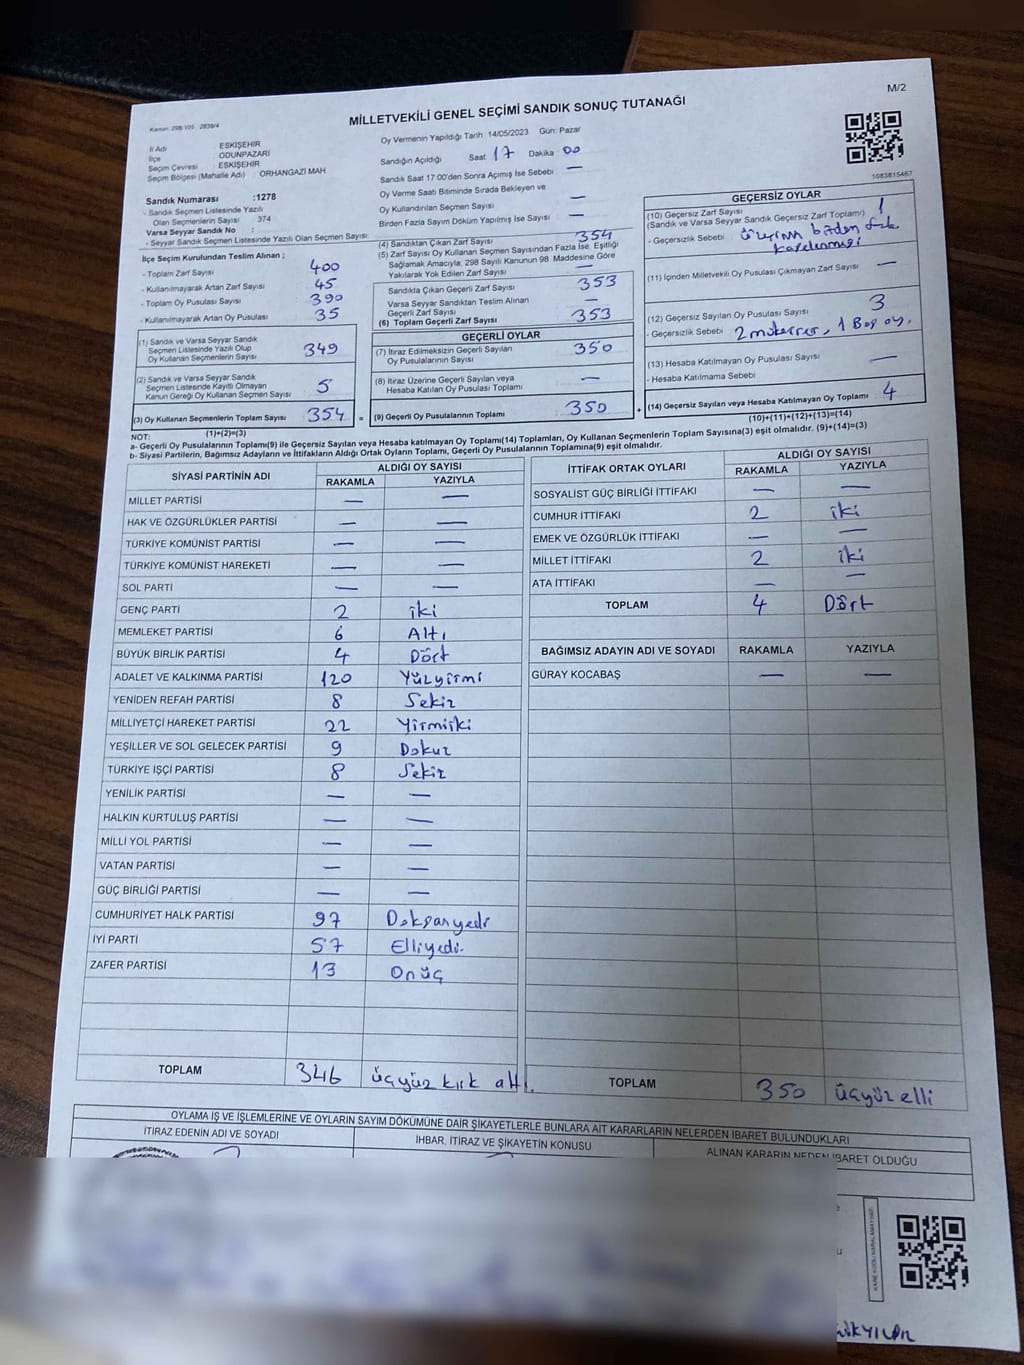 M/2
MİLLETVEKİLİ GENEL SEÇİMİ SANDIK SONUÇ TUTANAĞI
Kanun: 298/105 2839/4
İl Adı ESKİŞEHİR
İlçe ODUNPAZARI
Seçim Çevresi ESKİŞEHİR
Seçim Bölgesi (Mahalle Adı) ORHANGAZİ MAH
Sandık Numarası :1278
- Sandık Seçmen Listesinde Yazılı
Olan Seçmenlerin Sayısı 374
Varsa Seyyar Sandık No :
- Seyyar Sandık Seçmen Listesinde Yazılı Olan Seçmen Sayısı:
İlçe Seçim Kurulundan Teslim Alınan ;
- Toplam Zarf Sayısı 400
- Kullanılmayarak Artan Zarf Sayısı 45
- Toplam Oy Pusulası Sayısı 390
- Kullanılmayarak Artan Oy Pusulası 35
(1) Sandık ve Varsa Seyyar Sandık
Seçmen Listesinde Yazılı Olup
Oy Kullanan Seçmenlerin Sayısı 349
(2) Sandık ve Varsa Seyyar Sandık
Seçmen Listesinde Kayıtlı Olmayan
Kanun Gereği Oy Kullanan Seçmen Sayısı 5
(3) Oy Kullanan Seçmenlerin Toplam Sayısı 354 =
(1)+(2)=(3)
Oy Vermenin Yapıldığı Tarih : 14/05/2023 Gün: Pazar
Sandığın Açıldığı Saat 17 Dakika 00
Sandık Saat 17:00'den Sonra Açılmış İse Sebebi —
Oy Verme Saati Bitiminde Sırada Bekleyen ve
Oy Kullandırılan Seçmen Sayısı —
Birden Fazla Sayım Döküm Yapılmış İse Sayısı —
(4) Sandıktan Çıkan Zarf Sayısı 354
(5) Zarf Sayısı Oy Kullanan Seçmen Sayısından Fazla İse, Eşitliği
Sağlamak Amacıyla, 298 Sayılı Kanunun 98. Maddesine Göre
Yakılarak Yok Edilen Zarf Sayısı —
Sandıkta Çıkan Geçerli Zarf Sayısı 353
Varsa Seyyar Sandıktan Teslim Alınan
Geçerli Zarf Sayısı —
(6) Toplam Geçerli Zarf Sayısı 353
GEÇERLİ OYLAR
(7) İtiraz Edilmeksizin Geçerli Sayılan
Oy Pusulalarının Sayısı 350
(8) İtiraz Üzerine Geçerli Sayılan veya
Hesaba Katılan Oy Pusulası Toplamı —
(9) Geçerli Oy Pusulalarının Toplamı 350 +
1083815467
GEÇERSİZ OYLAR
(10) Geçersiz Zarf Sayısı
(Sandık ve Varsa Seyyar Sandık Geçersiz Zarf Toplamı) 1
- Geçersizlik Sebebi
(11) İçinden Milletvekili Oy Pusulası Çıkmayan Zarf Sayısı —
(12) Geçersiz Sayılan Oy Pusulası Sayısı 3
- Geçersizlik Sebebi 2 mükerrer, 1 Boş oy.
(13) Hesaba Katılmayan Oy Pusulası Sayısı —
- Hesaba Katılmama Sebebi
(14) Geçersiz Sayılan veya Hesaba Katılmayan Oy Toplamı 4
(10)+(11)+(12)+(13)=(14)
NOT:
a- Geçerli Oy Pusulalarının Toplamı(9) ile Geçersiz Sayılan veya Hesaba katılmayan Oy Toplamı(14) Toplamları, Oy Kullanan Seçmenlerin Toplam Sayısına(3) eşit olmalıdır. (9)+(14)=(3)
b- Siyasi Partilerin, Bağımsız Adayların ve İttifakların Aldığı Ortak Oyların Toplamı, Geçerli Oy Pusulalarının Toplamına(9) eşit olmalıdır.
SİYASİ PARTİNİN ADI ALDIĞI OY SAYISI
RAKAMLA YAZIYLA
MİLLET PARTİSİ — —
HAK VE ÖZGÜRLÜKLER PARTİSİ — —
TÜRKİYE KOMÜNİST PARTİSİ — —
TÜRKİYE KOMÜNİST HAREKETİ — —
SOL PARTİ — —
GENÇ PARTİ 2 iki
MEMLEKET PARTİSİ 6 Altı
BÜYÜK BİRLİK PARTİSİ 4 Dört
ADALET VE KALKINMA PARTİSİ 120 Yüzyirmi
YENİDEN REFAH PARTİSİ 8 Sekiz
MİLLİYETÇİ HAREKET PARTİSİ 22 Yirmiiki
YEŞİLLER VE SOL GELECEK PARTİSİ 9 Dokuz
TÜRKİYE İŞÇİ PARTİSİ 8 Sekiz
YENİLİK PARTİSİ — —
HALKIN KURTULUŞ PARTİSİ — —
MİLLİ YOL PARTİSİ — —
VATAN PARTİSİ — —
GÜÇ BİRLİĞİ PARTİSİ — —
CUMHURİYET HALK PARTİSİ 97 Doksanyedi
İYİ PARTİ 57 Elliyedi.
ZAFER PARTİSİ 13 Onüç
TOPLAM 346 üçyüz kırk altı.
İTTİFAK ORTAK OYLARI ALDIĞI OY SAYISI
RAKAMLA YAZIYLA
SOSYALİST GÜÇ BİRLİĞİ İTTİFAKI — —
CUMHUR İTTİFAKI 2 iki
EMEK VE ÖZGÜRLÜK İTTİFAKI — —
MİLLET İTTİFAKI 2 iki
ATA İTTİFAKI — —
TOPLAM 4 Dört
BAĞIMSIZ ADAYIN ADI VE SOYADI RAKAMLA YAZIYLA
GÜRAY KOCABAŞ — —
TOPLAM 350 üçyüz elli
OYLAMA İŞ VE İŞLEMLERİNE VE OYLARIN SAYIM DÖKÜMÜNE DAİR ŞİKAYETLERLE BUNLARA AİT KARARLARIN NELERDEN İBARET BULUNDUKLARI
İTİRAZ EDENİN ADI VE SOYADI İHBAR, İTİRAZ VE ŞİKAYETİN KONUSU ALINAN KARARIN NEDEN İBARET OLDUĞU